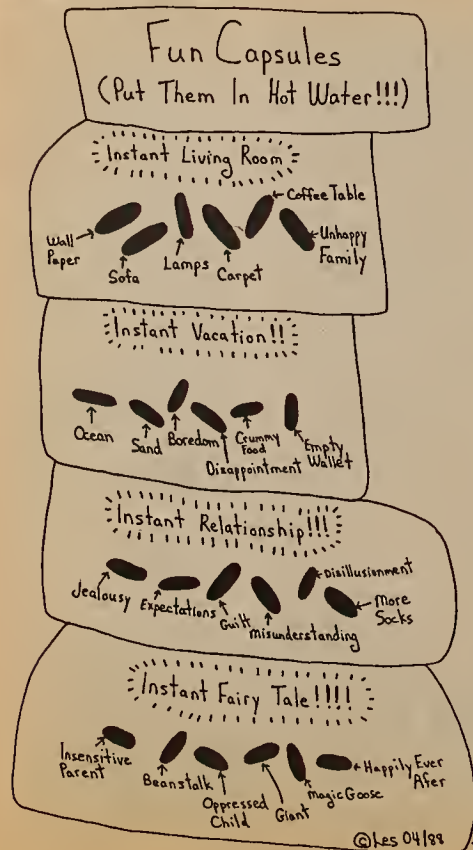 Fun Capsules
(Put Them In Hot Water!!!)
Instant Living Room
Wall
Paper
Sofa
Lamps
Carpet
Coffee Table
Unhappy
Family
Instant Vacation!!
Ocean
Sand
Boredom
Disappointment
Crummy
Food
Empty
Wallet
Instant Relationship!!!
Jealousy
Expectations
Guilt
Misunderstanding
Disillusionment
More
Socks
Instant Fairy Tale!!!!
Insensitive
Parent
Beanstalk
Oppressed
Child
Giant
Magic Goose
Happily Ever
Afer
©Les 04/88